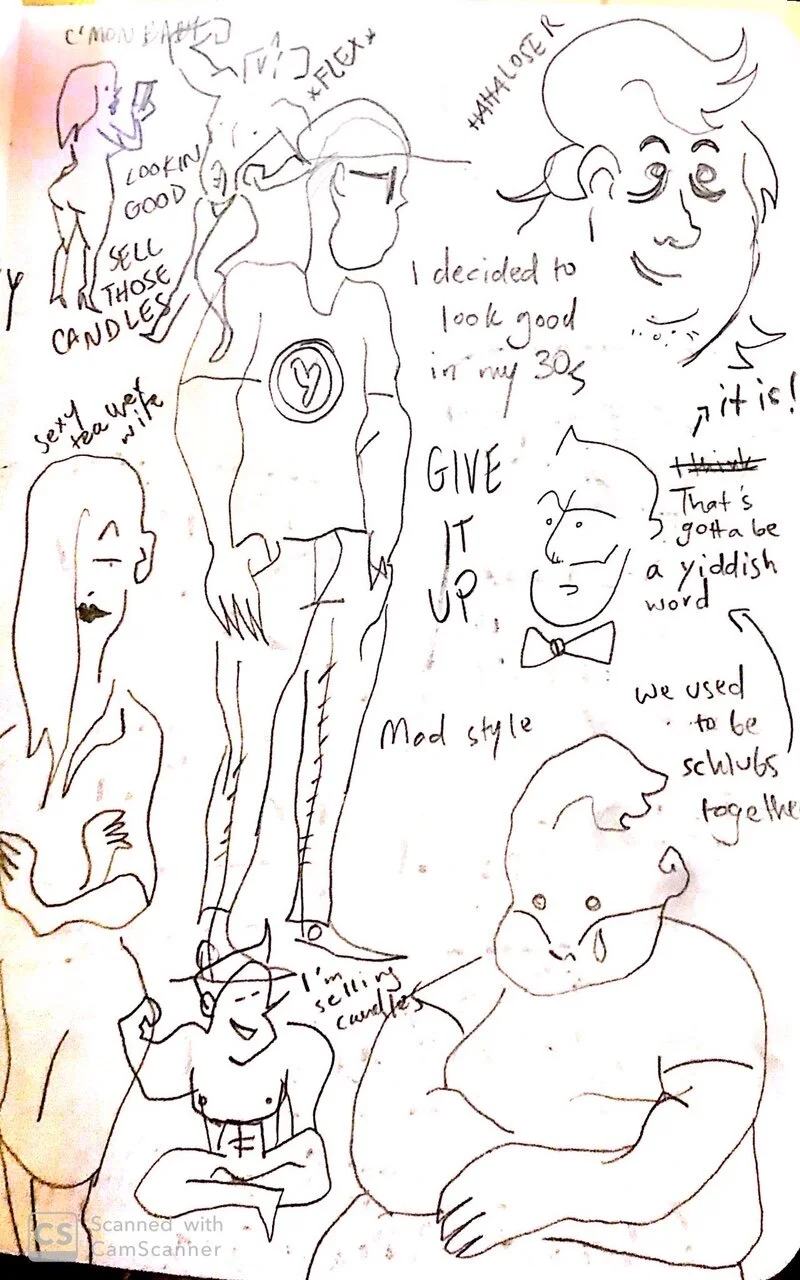 C'MON BABY
*FLEX*
HAHA LOSER
LOOKIN
GOOD
SELL
THOSE
CANDLES
Y
I decided to
look good
in my 30s
it is!
sexy
wife
GIVE
IT
UP
I think
That's
gotta be
a yiddish
word
we used
to be
schlubs
together
Mod style
I'm
selling
candles
CS
Scanned with
CamScanner